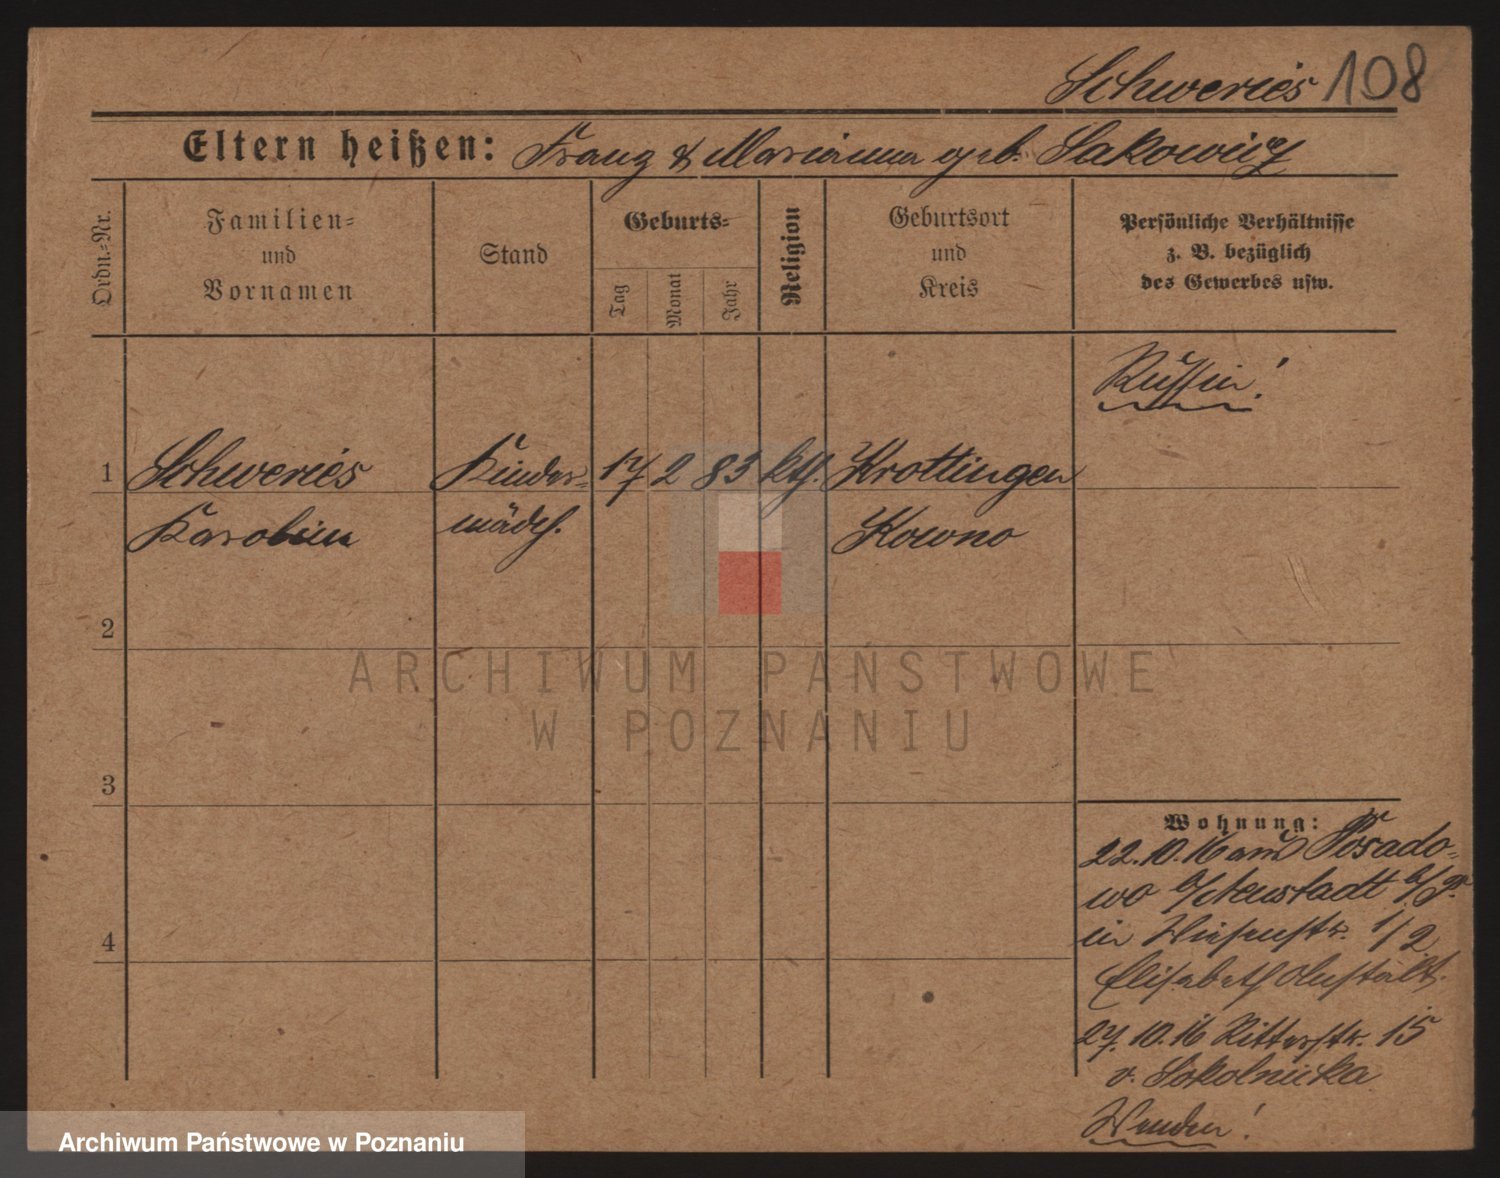 Schweriés 108
Eltern heißen: Franz & Marianna geb. Sakowicz
Ordn.-Nr.
Familien-
und
Vornamen
Stand
Geburts-
Tag
Monat
Jahr
Religion
Geburtsort
und
Kreis
Persönliche Verhältnisse
z. B. bezüglich
des Gewerbes usw.
Russin!
1 Schweriés Kinder- 17 2 83 kth. Krottingen
Karolina mädch. Kowno
2
3
4
Wohnung:
22.10.16 aus Posado-
wo b/Neustadt b/P.
in Wiesenstr. 1/2
Elisabeth Anstalt.
27.10.16 Ritterstr. 15
v. Sokolnicka
Wenden!
ARCHIWUM PAŃSTWOWE
W POZNANIU
Archiwum Państwowe w Poznaniu